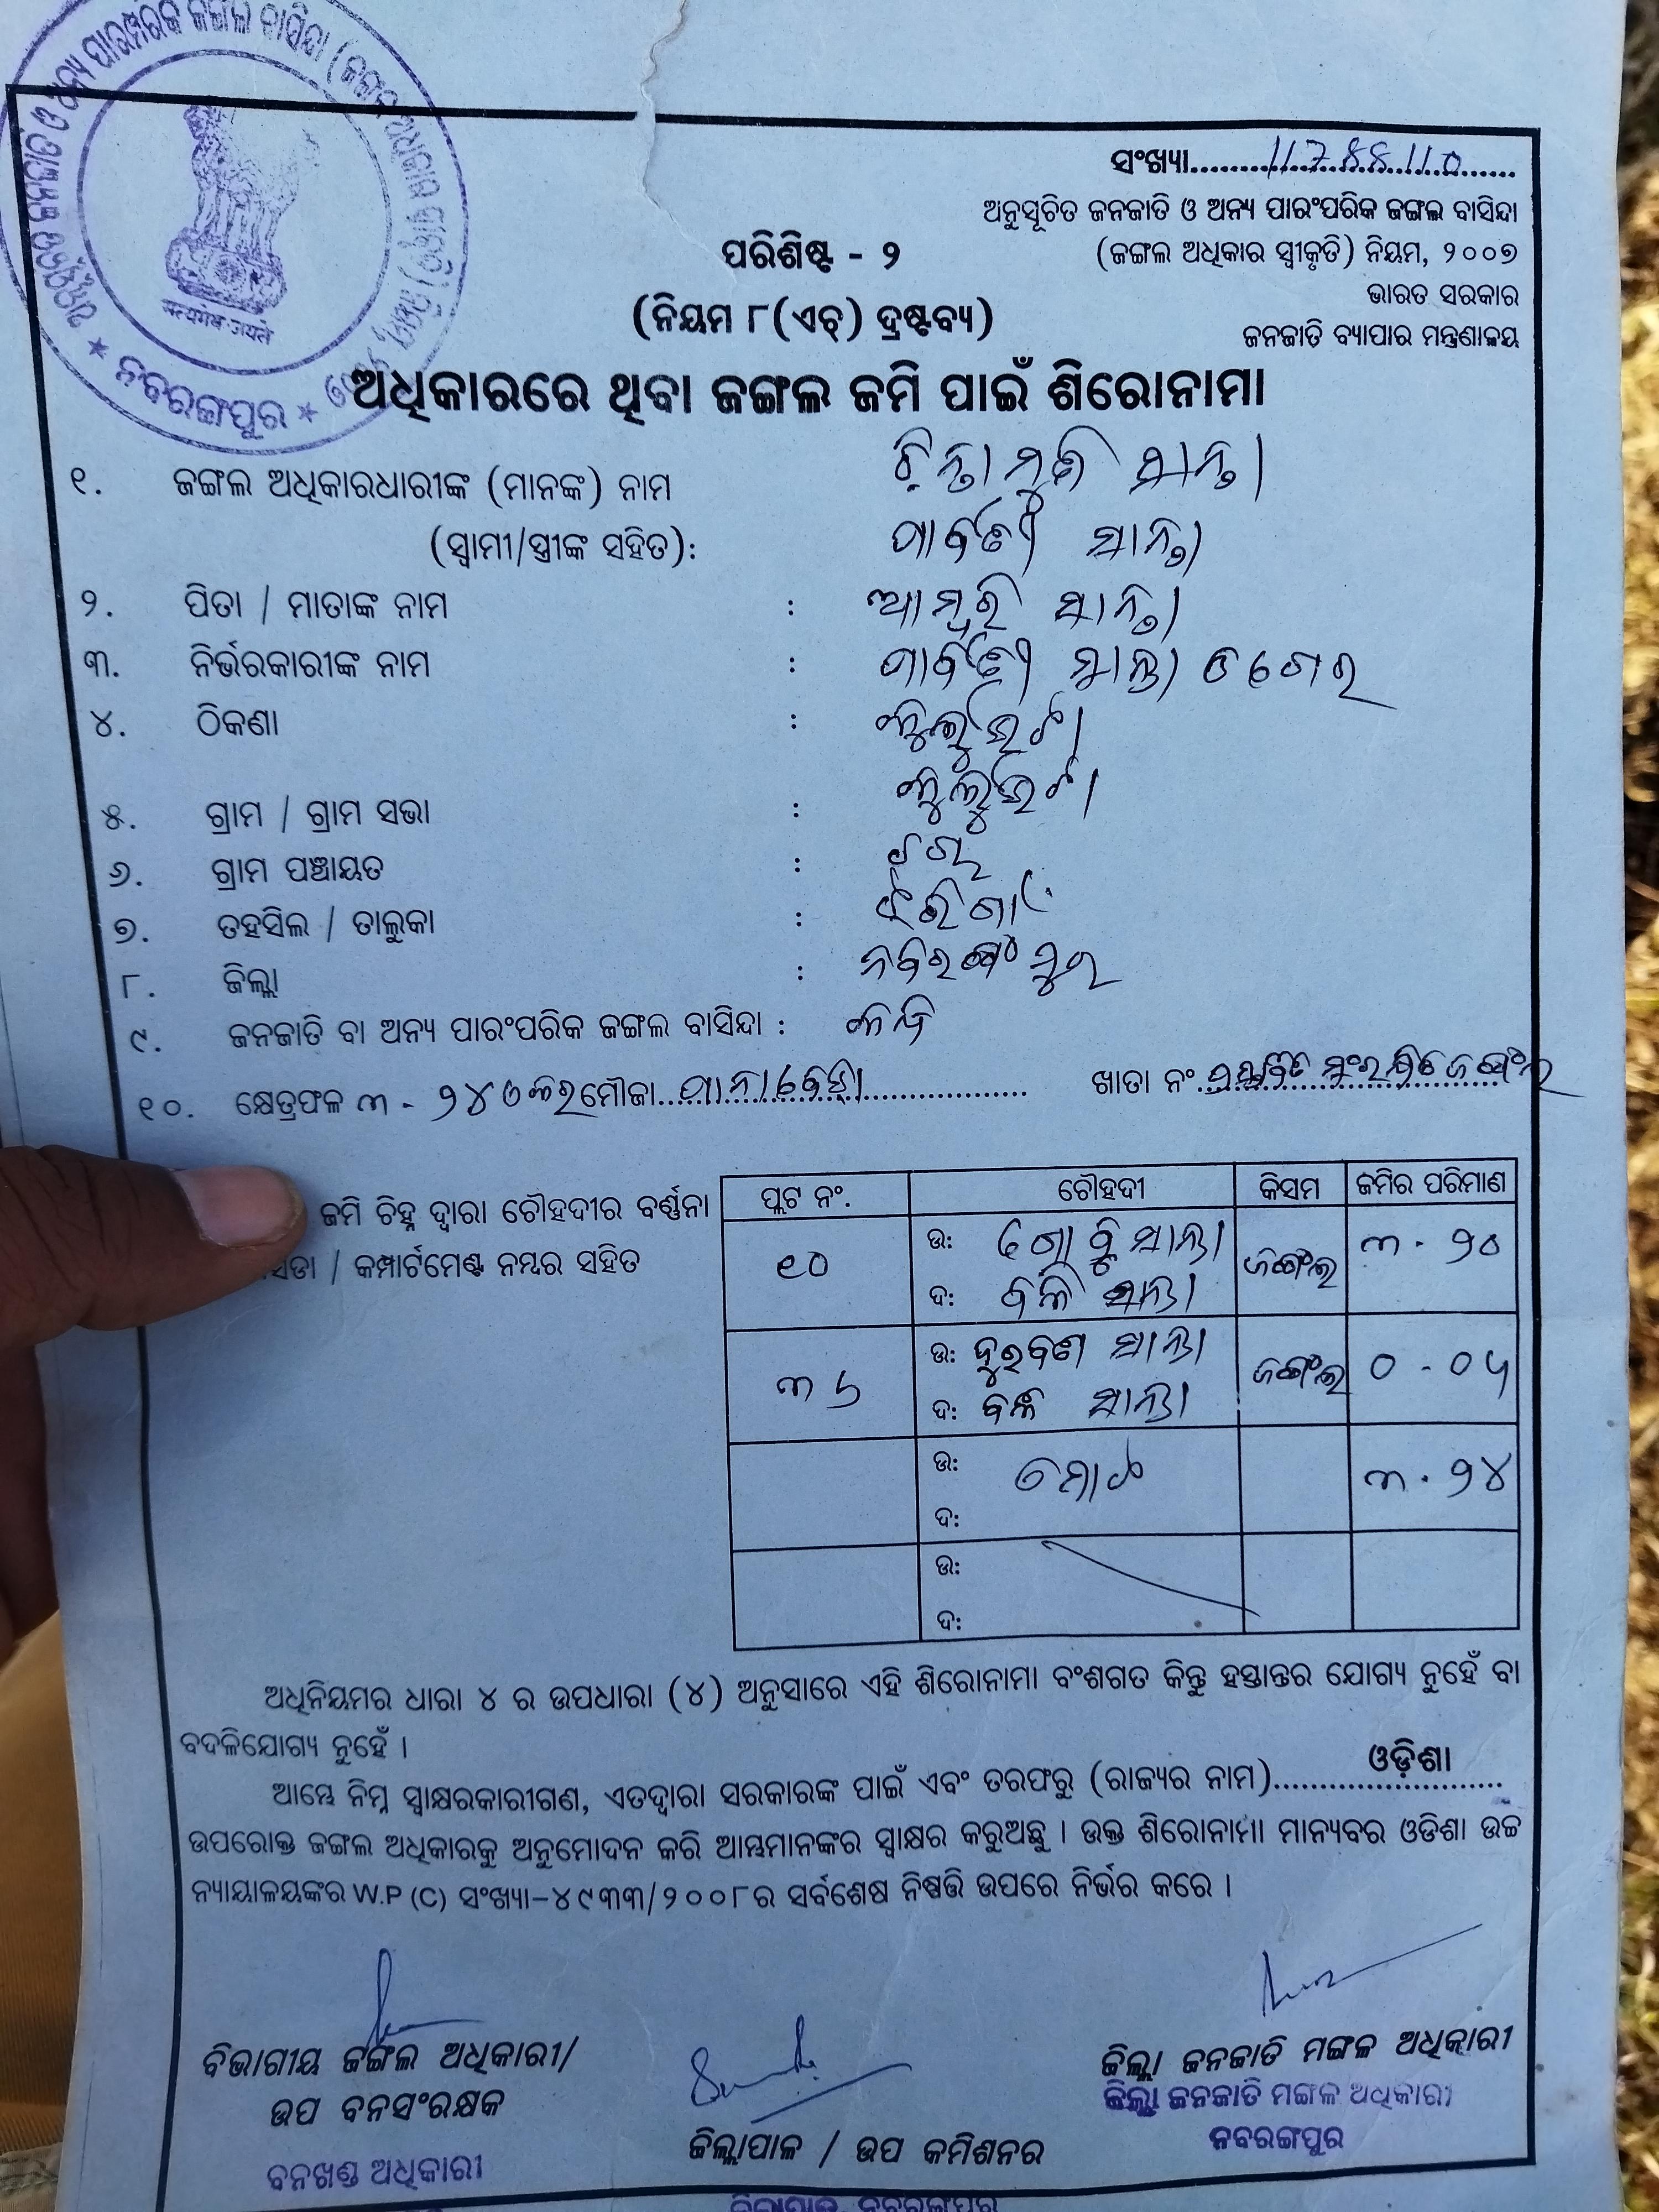 ଅନୁସୂଚିତ ଜନଜାତି ଓ ଅନ୍ୟ ପାରମ୍ପରିକ ଜଙ୍ଗଲ ବାସିନ୍ଦା (ଜଙ୍ଗଲ ଅଧିକାର ସ୍ୱୀକୃତି) ନିୟମ,
सत्यमेव जयते
★ ନବରଙ୍ଗପୁର ★
ସଂଖ୍ୟା..........
ଅନୁସୂଚିତ ଜନଜାତି ଓ ଅନ୍ୟ ପାରଂପରିକ ଜଙ୍ଗଲ ବାସିନ୍ଦା
ପରିଶିଷ୍ଟ - ୨ (ଜଙ୍ଗଲ ଅଧିକାର ସ୍ୱୀକୃତି) ନିୟମ, ୨୦୦୭
ଭାରତ ସରକାର
(ନିୟମ ୮(ଏଚ୍) ଦ୍ରଷ୍ଟବ୍ୟ) ଜନଜାତି ବ୍ୟାପାର ମନ୍ତ୍ରଣାଳୟ
ଅଧିକାରରେ ଥିବା ଜଙ୍ଗଲ ଜମି ପାଇଁ ଶିରୋନାମା
୧. ଜଙ୍ଗଲ ଅଧିକାରଧାରୀଙ୍କ (ମାନଙ୍କ) ନାମ
(ସ୍ୱାମୀ/ସ୍ତ୍ରୀଙ୍କ ସହିତ): ପାର୍ବତୀ ସାନ୍ତା
୨. ପିତା / ମାତାଙ୍କ ନାମ : ସାନ୍ତା
୩. ନିର୍ଭରକାରୀଙ୍କ ନାମ : ପାର୍ବତୀ ସାନ୍ତା
୪. ଠିକଣା :
୫. ଗ୍ରାମ / ଗ୍ରାମ ସଭା :
୬. ଗ୍ରାମ ପଞ୍ଚାୟତ :
୭. ତହସିଲ / ତାଲୁକା : ଝରିଗାଁ
୮. ଜିଲ୍ଲା : ନବରଙ୍ଗପୁର
୯. ଜନଜାତି ବା ଅନ୍ୟ ପାରଂପରିକ ଜଙ୍ଗଲ ବାସିନ୍ଦା :
୧୦. କ୍ଷେତ୍ରଫଳ ୩ - ୨୪ ମୌଜା.......... ଖାତା ନଂ..........
ଜମି ଚିହ୍ନ ଦ୍ୱାରା ଚୌହଦୀର ବର୍ଣ୍ଣନା
/ କମ୍ପାର୍ଟମେଣ୍ଟ ନମ୍ବର ସହିତ
ପ୍ଲଟ ନଂ. ଚୌହଦୀ କିସମ ଜମିର ପରିମାଣ
୧୦ ଉ: ସାନ୍ତା ଜଙ୍ଗଲ ୩ - ୨୦
ଦ: ସାନ୍ତା
୩୬ ଉ: ସାନ୍ତା ଜଙ୍ଗଲ ୦ - ୦୪
ଦ: ସାନ୍ତା
ଉ: ମୋଟ ୩ - ୨୪
ଦ:
ଉ:
ଦ:
ଅଧିନିୟମର ଧାରା ୪ ର ଉପଧାରା (୪) ଅନୁସାରେ ଏହି ଶିରୋନାମା ବଂଶଗତ କିନ୍ତୁ ହସ୍ତାନ୍ତର ଯୋଗ୍ୟ ନୁହେଁ ବା
ବଦଳିଯୋଗ୍ୟ ନୁହେଁ ।
ଆମ୍ଭେ ନିମ୍ନ ସ୍ୱାକ୍ଷରକାରୀଗଣ, ଏତଦ୍ୱାରା ସରକାରଙ୍କ ପାଇଁ ଏବଂ ତରଫରୁ (ରାଜ୍ୟର ନାମ)..........ଓଡ଼ିଶା..........
ଉପରୋକ୍ତ ଜଙ୍ଗଲ ଅଧିକାରକୁ ଅନୁମୋଦନ କରି ଆମ୍ଭମାନଙ୍କର ସ୍ୱାକ୍ଷର କରୁଅଛୁ । ଉକ୍ତ ଶିରୋନାମା ମାନ୍ୟବର ଓଡିଶା ଉଚ୍ଚ
ନ୍ୟାୟାଳୟଙ୍କର W.P (C) ସଂଖ୍ୟା-୪୯୩୩/୨୦୦୮ର ସର୍ବଶେଷ ନିଷ୍ପତ୍ତି ଉପରେ ନିର୍ଭର କରେ ।
ବିଭାଗୀୟ ଜଙ୍ଗଲ ଅଧିକାରୀ/ ଜିଲ୍ଲା ଜନଜାତି ମଙ୍ଗଳ ଅଧିକାରୀ
ଉପ ବନସଂରକ୍ଷକ ଜିଲ୍ଲା ଜନଜାତି ମଙ୍ଗଳ ଅଧିକାରୀ
ଜିଲ୍ଲାପାଳ / ଉପ କମିଶନର ନବରଙ୍ଗପୁର
ବନଖଣ୍ଡ ଅଧିକାରୀ
ଜିଲ୍ଲାପାଳ, ନବରଙ୍ଗପୁର